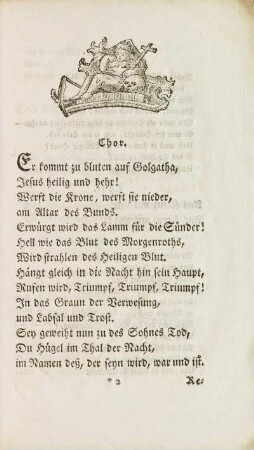 Chor.
Er kommt zu bluten auf Golgatha,
Jesus heilig und hehr!
Werft die Krone, werft sie nieder,
am Altar des Bunds.
Erwürgt wird das Lamm für die Sünder!
Hell wie das Blut des Morgenroths,
Wird strahlen des Heiligen Blut.
Hängt gleich in die Nacht hin sein Haupt,
Rufen wird, Triumpf, Triumpf, Triumpf!
In das Graun der Verwesung,
und Labsal und Trost.
Sey geweiht nun zu des Sohnes Tod,
Du Hügel im Thal der Nacht,
im Namen deß, der seyn wird, war und ist.
*2 Re-